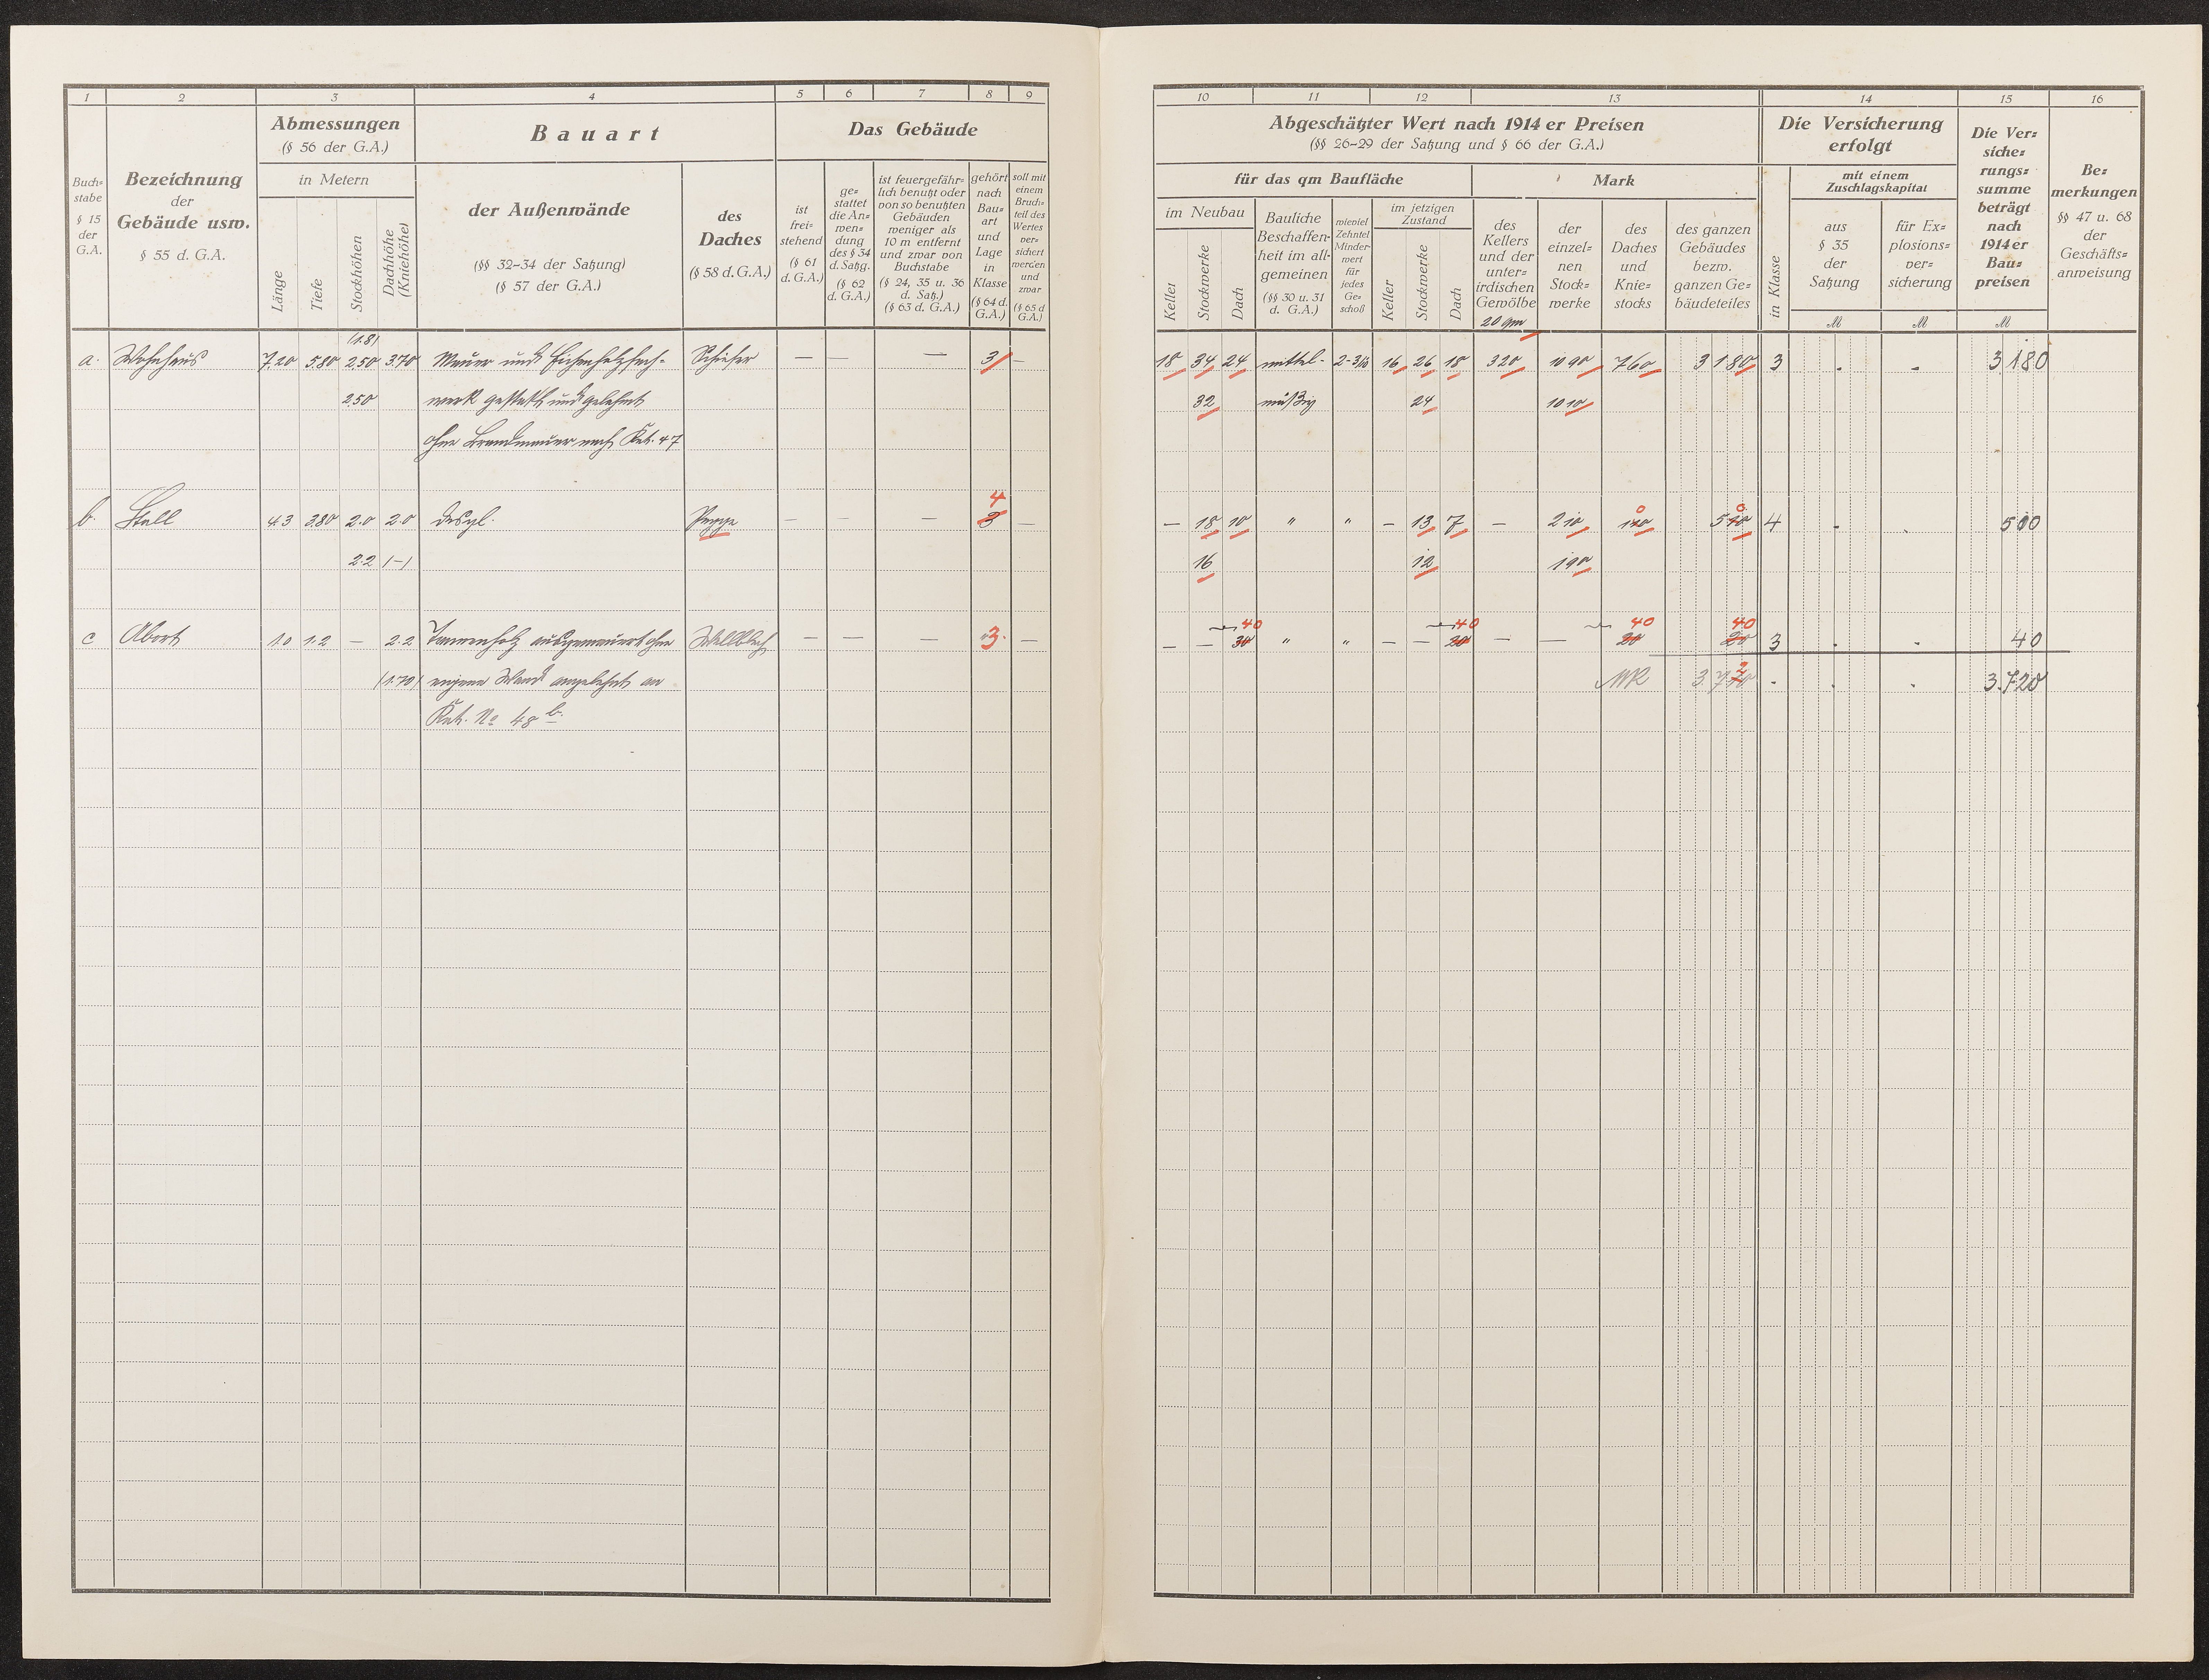 1 2 3 4 5 6 7 8 9
Abmessungen
(§ 56 der G.A.)
in Metern
Bauart
Das Gebäude
Buch=
stabe
§ 15
der
G.A.
Bezeichnung
der
Gebäude usw.
§ 55 d. G.A.
Länge
Tiefe
Stockhöhen
Dachhöhe
(Kniehöhe)
der Außenwände
(§§ 32-34 der Satzung)
(§ 57 der G.A.)
des
Daches
(§ 58 d. G.A.)
ist
frei=
stehend
(§ 61
d. G.A.)
ge=
stattet
die An=
wen=
dung
des § 34
d. Satzg.
(§ 62
d. G.A.)
ist feuergefähr=
lich benutzt oder
von so benutzten
Gebäuden
weniger als
10 m entfernt
und zwar von
Buchstabe
(§ 24, 35 u. 36
d. Satz.)
(§ 63 d. G.A.)
gehört
nach
Bau=
art
und
Lage
in
Klasse
(§ 64 d.
G.A.)
soll mit
einem
Bruch=
teil des
Wertes
ver=
sichert
werden
und
zwar
(§ 65 d
G.A.)
(1.8)
a. Wohnhaus 7.20 5.80 2.50 3.70 Mauer und Eichenholzfach- Schiefer — — — 3 —
2.50 werk gestakt und gelehmt
ohne Brandmauer nach Kat. 47
4
b. Stall 4.3 3.80 2.0 2.0 desgl. Pappe — — — 3 —
2.2 (—)
c Abort 1.0 1.2 — 2.2 Tannenholz ausgemauert ohne Wellblech — — — 3. —
(1.70) eigene Wand angelehnt an
Kat. No 48 b.
10 11 12 13 14 15 16
Abgeschätzter Wert nach 1914 er Preisen
(§§ 26-29 der Satzung und § 66 der G.A.)
für das qm Baufläche
Mark
im Neubau
Keller
Stockwerke
Dach
Bauliche
Beschaffen=
heit im all=
gemeinen
(§§ 30 u. 31
d. G.A.)
wieviel
Zehntel
Minder=
wert
für
jedes
Ge=
schoß
im jetzigen
Zustand
Keller
Stockwerke
Dach
des
Kellers
und der
unter=
irdischen
Gewölbe
20 qm
der
einzel=
nen
Stock=
werke
des
Daches
und
Knie=
stocks
des ganzen
Gebäudes
bezw.
ganzen Ge=
bäudeteiles
Die Versicherung
erfolgt
in Klasse
mit einem
Zuschlagskapital
aus
§ 35
der
Satzung
M
für Ex=
plosions=
ver=
sicherung
M
Die Ver=
siche=
rungs=
summe
beträgt
nach
1914 er
Bau=
preisen
M
Be=
merkungen
§§ 47 u. 68
der
Geschäfts=
anweisung
18 34 24 mittel- 2-3/10 16 26 18 320 1090 760 3180 3 . . 3180
32 mäßig 24 1010
0 0
— 18 10 " " — 13 7 — 210 110 510 4 . . 500
16 12 190
40 40 40 40
— — 30 " " — — 20 — — 20 20 3 . . 40
3.7 . . . 3.720